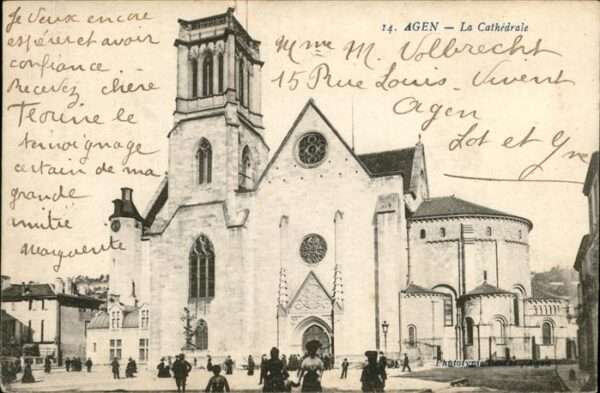 Je veux encore
espérer et avoir
confiance.
Recevez chère
le
témoignage
certain de ma
grande
amitié
Marguerite
14. AGEN — La Cathédrale
Mme M. Volbrecht
15 Rue Louis Vivent
Agen
Lot et Gne